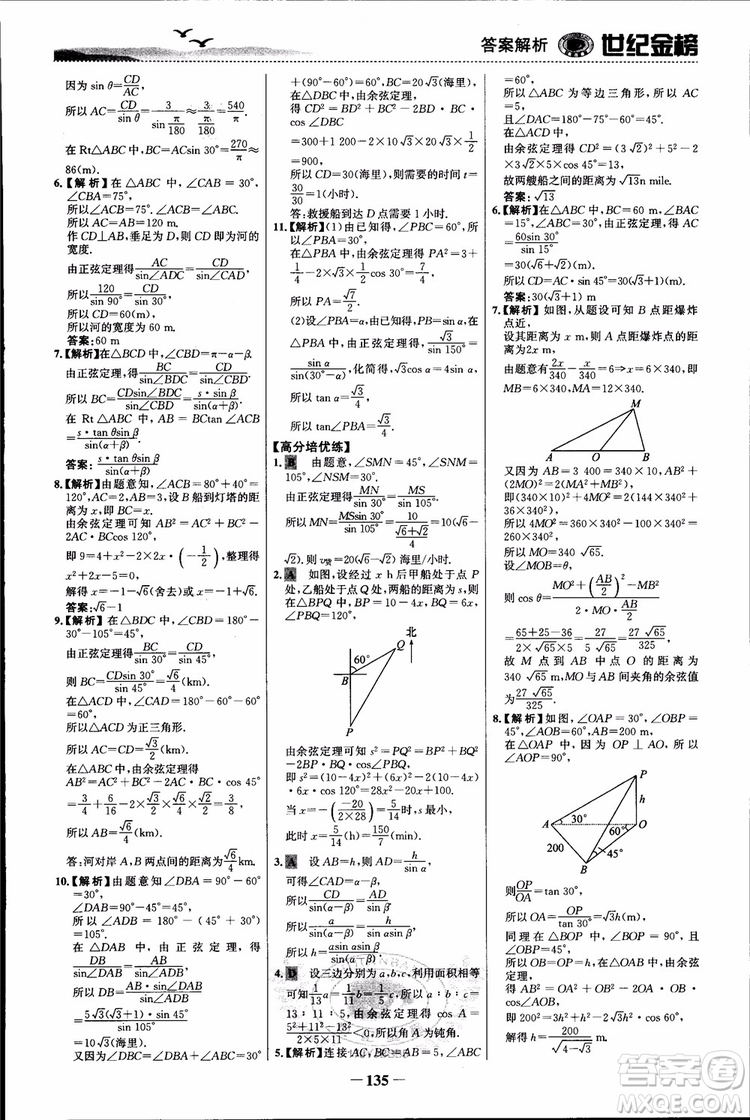 答案解析 世纪金榜
因为 sin θ=CD/AC,
所以 AC=CD/sin θ=3/sin π/180≈3/(π/180)=540/π.
在 Rt△ABC 中,AB=AC/sin 45°=270/π≈
86(m).
6.【解析】在△ABC 中,∠CAB = 30°,
∠CBA=75°,
所以∠ACB=75°,∠ACB=∠ABC.
所以 AC=AB=120(m).
作 CD⊥AB,垂足为 D,则 CD 即为河的
宽度.
由正弦定理得 AC/sin∠ADC=CD/sin∠CAD,
所以 120/sin 90°=CD/sin 30°,
所以 CD=60(m),
所以河的宽度为 60 m.
答案:60 m
7.【解析】在△BCD 中,∠CBD=π-α-β.
由正弦定理得 BC/sin∠BDC=CD/sin∠CBD,
所以 BC=CDsin∠BDC/sin∠CBD=s·sin β/sin(α+β).
在 Rt △ABC 中,AB = BCtan ∠ACB
=s·tan θsin β/sin(α+β).
答案:s·tan θsin β/sin(α+β)
8.【解析】由题意知,∠ABC=80°+40°=
120°,AC=3,设 B 船到灯塔的距离
为x,即BC=x.
由余弦定理可知 AB²=AC²+BC²-
2AC·BCcos 120°,
即 9=4+x²-2×2x×(-1/2),整理得
x²+2x-5=0,
解得 x=-1-√6(舍去)或 x=-1+√6.
答案:√6-1
9.【解析】在△BDC 中,∠CBD=180°-
30°-105°=45°,
由正弦定理得 BC/sin 30°=CD/sin 45°,
则 BC=CDsin 30°/sin 45°=√6/4(km).
在△ACD 中,∠CAD=180°-60°-
60°=60°,
所以△ACD 为正三角形.
所以 AC=CD=√3/2(km).
在△ABC 中,由余弦定理得
AB²=AC²+BC²-2AC·BC·cos 45°
=3/4+6/16-2×√3/2×√6/4×√2/2=3/8,
所以 AB=√6/4(km).
答:河对岸 A,B 两点间的距离为√6/4 km.
10.【解析】由题意知∠DBA=90°-60°
=30°,∠DAB=45°,
所以∠ADB = 180° - (45° + 30°)
=105°.
在 △DAB 中,由正弦定理得
DB/sin∠DAB=AB/sin∠ADB,
所以 DB=AB·sin∠DAB/sin∠ADB=
5√3(√3+1)/sin 105°=
10√3(海里).
又因为∠DBC=∠DBA+∠ABC=30°
+(90°-60°)=60°,BC=20√3(海里),
在△DBC 中,由余弦定理,
得 CD² = BD² + BC² - 2BD·BC·
cos ∠DBC
=300+1 200-2×10√3×20√3×1/2
=900,
所以 CD=30(海里),则需要的时间 t=
30/30=1(小时).
答:救援船到达 D 点需要 1 小时.
11.【解析】(1)由已知得,∠PBC=60°,所
以∠PBA=30°.
在△PBA 中,由余弦定理得 PA²=3+
1/4-2×√3×1/2cos 30°=7/4.
所以 PA=√7/2.
(2)设∠PBA=α,由已知得 PB=sin α,
在△PBA 中,由正弦定理得 √3/sin 150°=
sin α/sin(30°-α),化简得 √3cos α=4sin α,
所以 tan α=√3/4,
所以 tan∠PBA=√3/4.
【高分培优练】
1. B 由题意,∠SMN=45°,∠SNM=
105°,∠NSM=30°.
由正弦定理得 MN/sin 30°=MS/sin 105°.
所以 MN=MSsin 30°/sin 105°=10/((√6+√2)/4)=10(√6-
√2).则 v货=20(√6-√2).
2. A 如图,设经过 x h 后甲船处于点 P
处,乙船处于点 Q 处,两船的距离为 s,则
在△BPQ 中,BP=10-4x,BQ=6x,
∠PBQ=120°,
北
60° Q
B
P
由余弦定理可知 s²=PQ²=BP²+BQ²
-2BP·BQ·cos∠PBQ,
即 s²=(10-4x)²+(6x)²-2(10-4x)·
6x·cos 120°=28x²-20x+100.
当 x=-(-20)/(2×28)=5/14时,s最小,
此时 x=5/14(h)=150/7(min).
3. A 设 AB=h,则 AD=h/sin β,
可得∠CAD=α-β,
所以 CD/sin(α-β)=AD/sin β.
所以 a/sin(α-β)=(h/sin α)/sin β,
所以 h=asin αsin β/sin(α-β).
4. D 设三边分别为 a,b,c,利用面积相等
可知1/13a=1/11b=1/5c,所以 a:b:c=
13:11:5. 由余弦定理得 cos A =
(5²+11²-13²)/(2×5×11)<0,所以角 A 为钝角.
5.【解析】连接 AC,因为 AB=5,∠ABC
=60°,
所以△ABC 为等边三角形,所以 AC
=5,
且∠DAC=180°-75°-60°=45°.
在△ACD 中,
由余弦定理得 CD²=(3√2)²+5²-2
×3√2×5×cos 45°=13,
故两艘船之间的距离为√13n mile.
答案:√13
6.【解析】在△ABC 中,∠BAC
=15°,所以 AC
=60sin 30°/sin 15°
=30(√6+√2).
所以 CD=AC·sin 45°=30(√3+1)(m).
答案:30(√3+1)
7.【解析】如图,从题设可知 B 点距爆炸
点近,
设其距离为 2x,A 点距爆炸点的距离
由题意有2x/340-x/340=6⇒x=6×340,即
MB=6×340,MA=12×340.
M
A O B
又因为 AB=3 400=10×340,AB²+
(2MO)²=2(MA²+MB²),
即(340×10)²+4MO²=2(144×340²+
36×340²),
所以 4MO²=360×340²-100×340²=
260×340²,
所以 MO²=65×340².
设∠MOB=θ,
则 cos θ=(MO²+(AB/2)²-MB²)/(2·MO·AB/2)
=(65+25-36)/(2×√65×5)=27/(5√65)=27√65/325.
故 M 点到 AB 中点 O 的距离为
340√65 m,与 AB 间夹角的余弦值
为27√65/325.
8.【解析】如图,∠OAP=30°,∠OBP=
45°,∠AOB=60°,AB=200 m,
在△AOP 中,因为 OP⊥AO,所以
∠AOP=90°,
P
h
A 30° 60° O
200 45°
B
则OP/OA=tan 30°,
所以 OA=OP/tan 30°=√3h(m).
同理在△BOP 中,∠BOP=90°,且
∠OBP=45°,
所以 OB=OP=h(m).
在△OAB 中,由余弦定理得
AB²=OA²+OB²-2OA·OBcos 60°,
即 200²=3h²+h²-2√3h²cos 60°,
解得 h=200/√(4-√3) m.
— 135 —
MXQE.COM